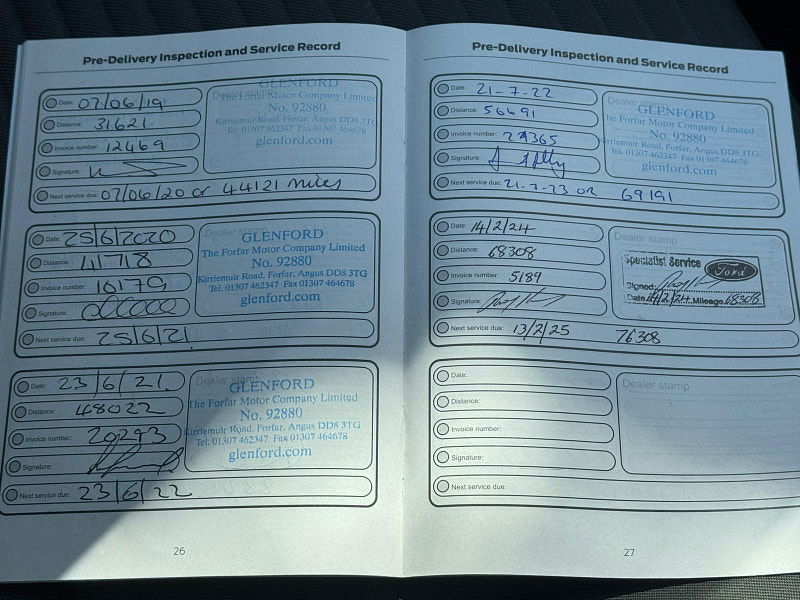 Pre-Delivery Inspection and Service Record
Date: 07/06/19
Distance: 31621
Invoice number: 12469
Signature:
Next service due: 07/06/20 or 44121 miles
Dealer stamp
GLENFORD
The Forfar Motor Company Limited
No. 92880
Kirriemuir Road, Forfar, Angus DD8 3TG
Tel. 01307 462347 Fax 01307 464678
glenford.com
Date: 25/6/2020
Distance: 41718
Invoice number: 16179
Signature:
Next service due: 25/6/21
Dealer stamp
GLENFORD
The Forfar Motor Company Limited
No. 92880
Kirriemuir Road, Forfar, Angus DD8 3TG
Tel. 01307 462347 Fax 01307 464678
glenford.com
Date: 23/6/21.
Distance: 48022
Invoice number: 20293
Signature:
Next service due: 23/6/22
Dealer stamp
GLENFORD
The Forfar Motor Company Limited
No. 92880
Kirriemuir Road, Forfar, Angus DD8 3TG
Tel. 01307 462347 Fax 01307 464678
glenford.com
26
Pre-Delivery Inspection and Service Record
Date: 21-7-22
Distance: 56691
Invoice number: 24365
Signature:
Next service due: 21-7-23 OR 69191
Dealer stamp
GLENFORD
The Forfar Motor Company Limited
No. 92880
Kirriemuir Road, Forfar, Angus DD8 3TG
Tel. 01307 462347 Fax 01307 464678
glenford.com
Date: 14/2/24
Distance: 68308
Invoice number: 5189
Signature:
Next service due: 13/2/25 76308
Dealer stamp
Specialist Service Ford
Signed
Date 14/2/24 Mileage 68308
Date:
Distance:
Invoice number:
Signature:
Next service due:
Dealer stamp
27